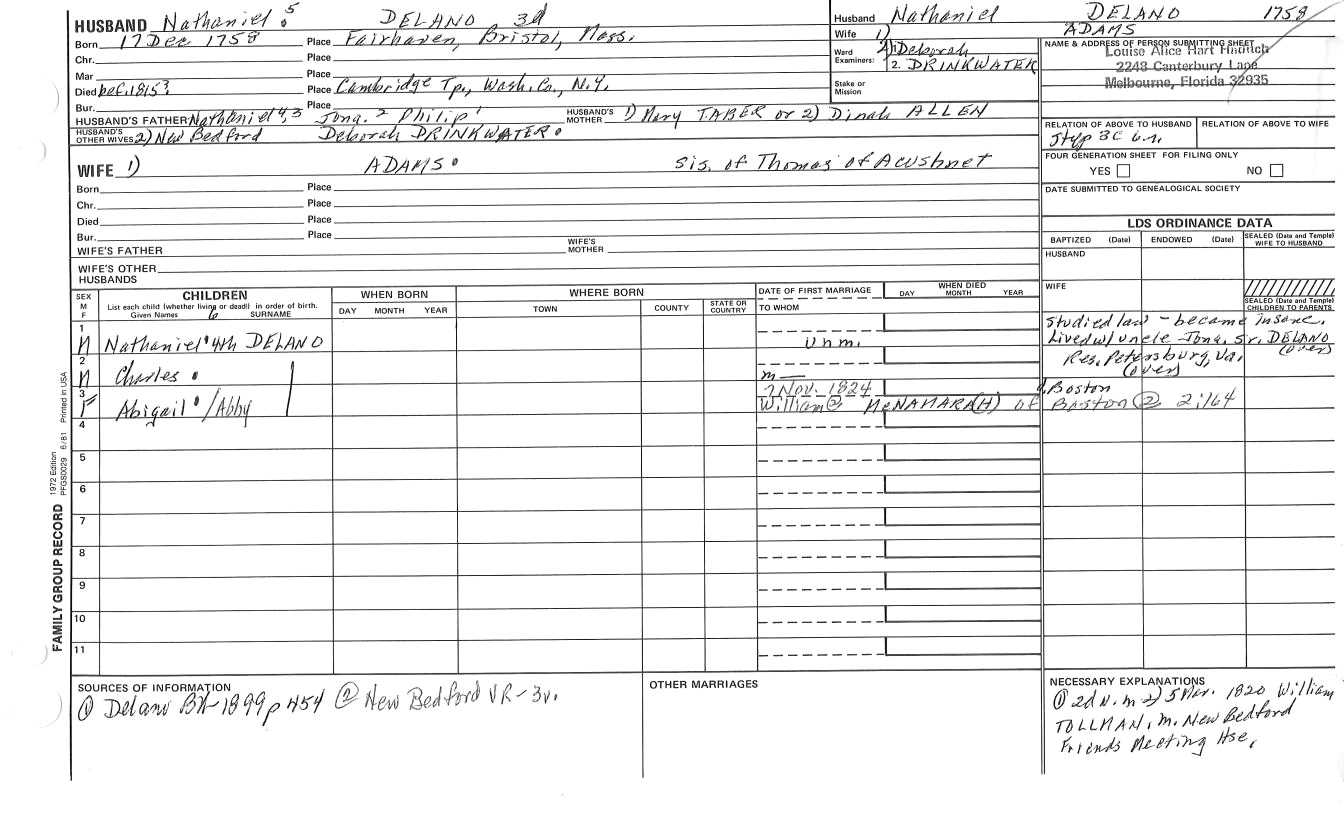 HUSBAND Nathaniel 5 DELANO 3d
Born 17 Dec 1758 Place Fairhaven, Bristol, Mass.
Chr. Place
Mar Place
Died bef. 1815? Place Cambridge Tp., Wash. Co., N.Y.
Bur. Place
HUSBAND'S FATHER Nathaniel 4,3 Jona. 2 Philip 1 HUSBAND'S MOTHER 1) Mary TABER or 2) Dinah ALLEN
HUSBAND'S OTHER WIVES 2) New Bedford Deborah DRINKWATER
WIFE 1) ADAMS sis. of Thomas of Acushnet
Born Place
Chr. Place
Died Place
Bur. Place
WIFE'S FATHER WIFE'S MOTHER
WIFE'S OTHER HUSBANDS
Husband Nathaniel DELANO 1758
Wife 1) ADAMS
Ward Examiners: 2) 1. Deborah
2. DRINKWATER
Stake or Mission
NAME & ADDRESS OF PERSON SUBMITTING SHEET
Louise Alice Hart
2248 Canterbury Lane
Melbourne, Florida 32935
RELATION OF ABOVE TO HUSBAND RELATION OF ABOVE TO WIFE
3C
FOUR GENERATION SHEET FOR FILING ONLY
YES NO
DATE SUBMITTED TO GENEALOGICAL SOCIETY
LDS ORDINANCE DATA
BAPTIZED (Date) ENDOWED (Date) SEALED (Date and Temple) WIFE TO HUSBAND
HUSBAND
WIFE
SEALED (Date and Temple) CHILDREN TO PARENTS
SEX M F CHILDREN WHEN BORN WHERE BORN DATE OF FIRST MARRIAGE WHEN DIED
List each child (whether living or dead) in order of birth.
Given Names 6 SURNAME DAY MONTH YEAR TOWN COUNTY STATE OR COUNTRY TO WHOM DAY MONTH YEAR
1 M Nathaniel 4th DELANO Unm. Studied law - became insane.
Lived w/ uncle Jona. Sr. DELANO (over)
2 M Charles m — Res. Petersburg, Va. (over)
3 F Abigail /Abby 7 Nov. 1824 Boston
William ② McNAMARA(H) of Boston ② 2:164
4
5
6
7
8
9
10
11
FAMILY GROUP RECORD 1972 Edition PFGS0029 6/81 Printed in USA
SOURCES OF INFORMATION
① Delano BK-1899 p 454 ② New Bedford VR-3v.
OTHER MARRIAGES
NECESSARY EXPLANATIONS
① 2d N. m 2) 5 Mar. 1820 William
TOLLMAN, m. New Bedford
Friends Meeting Hse.